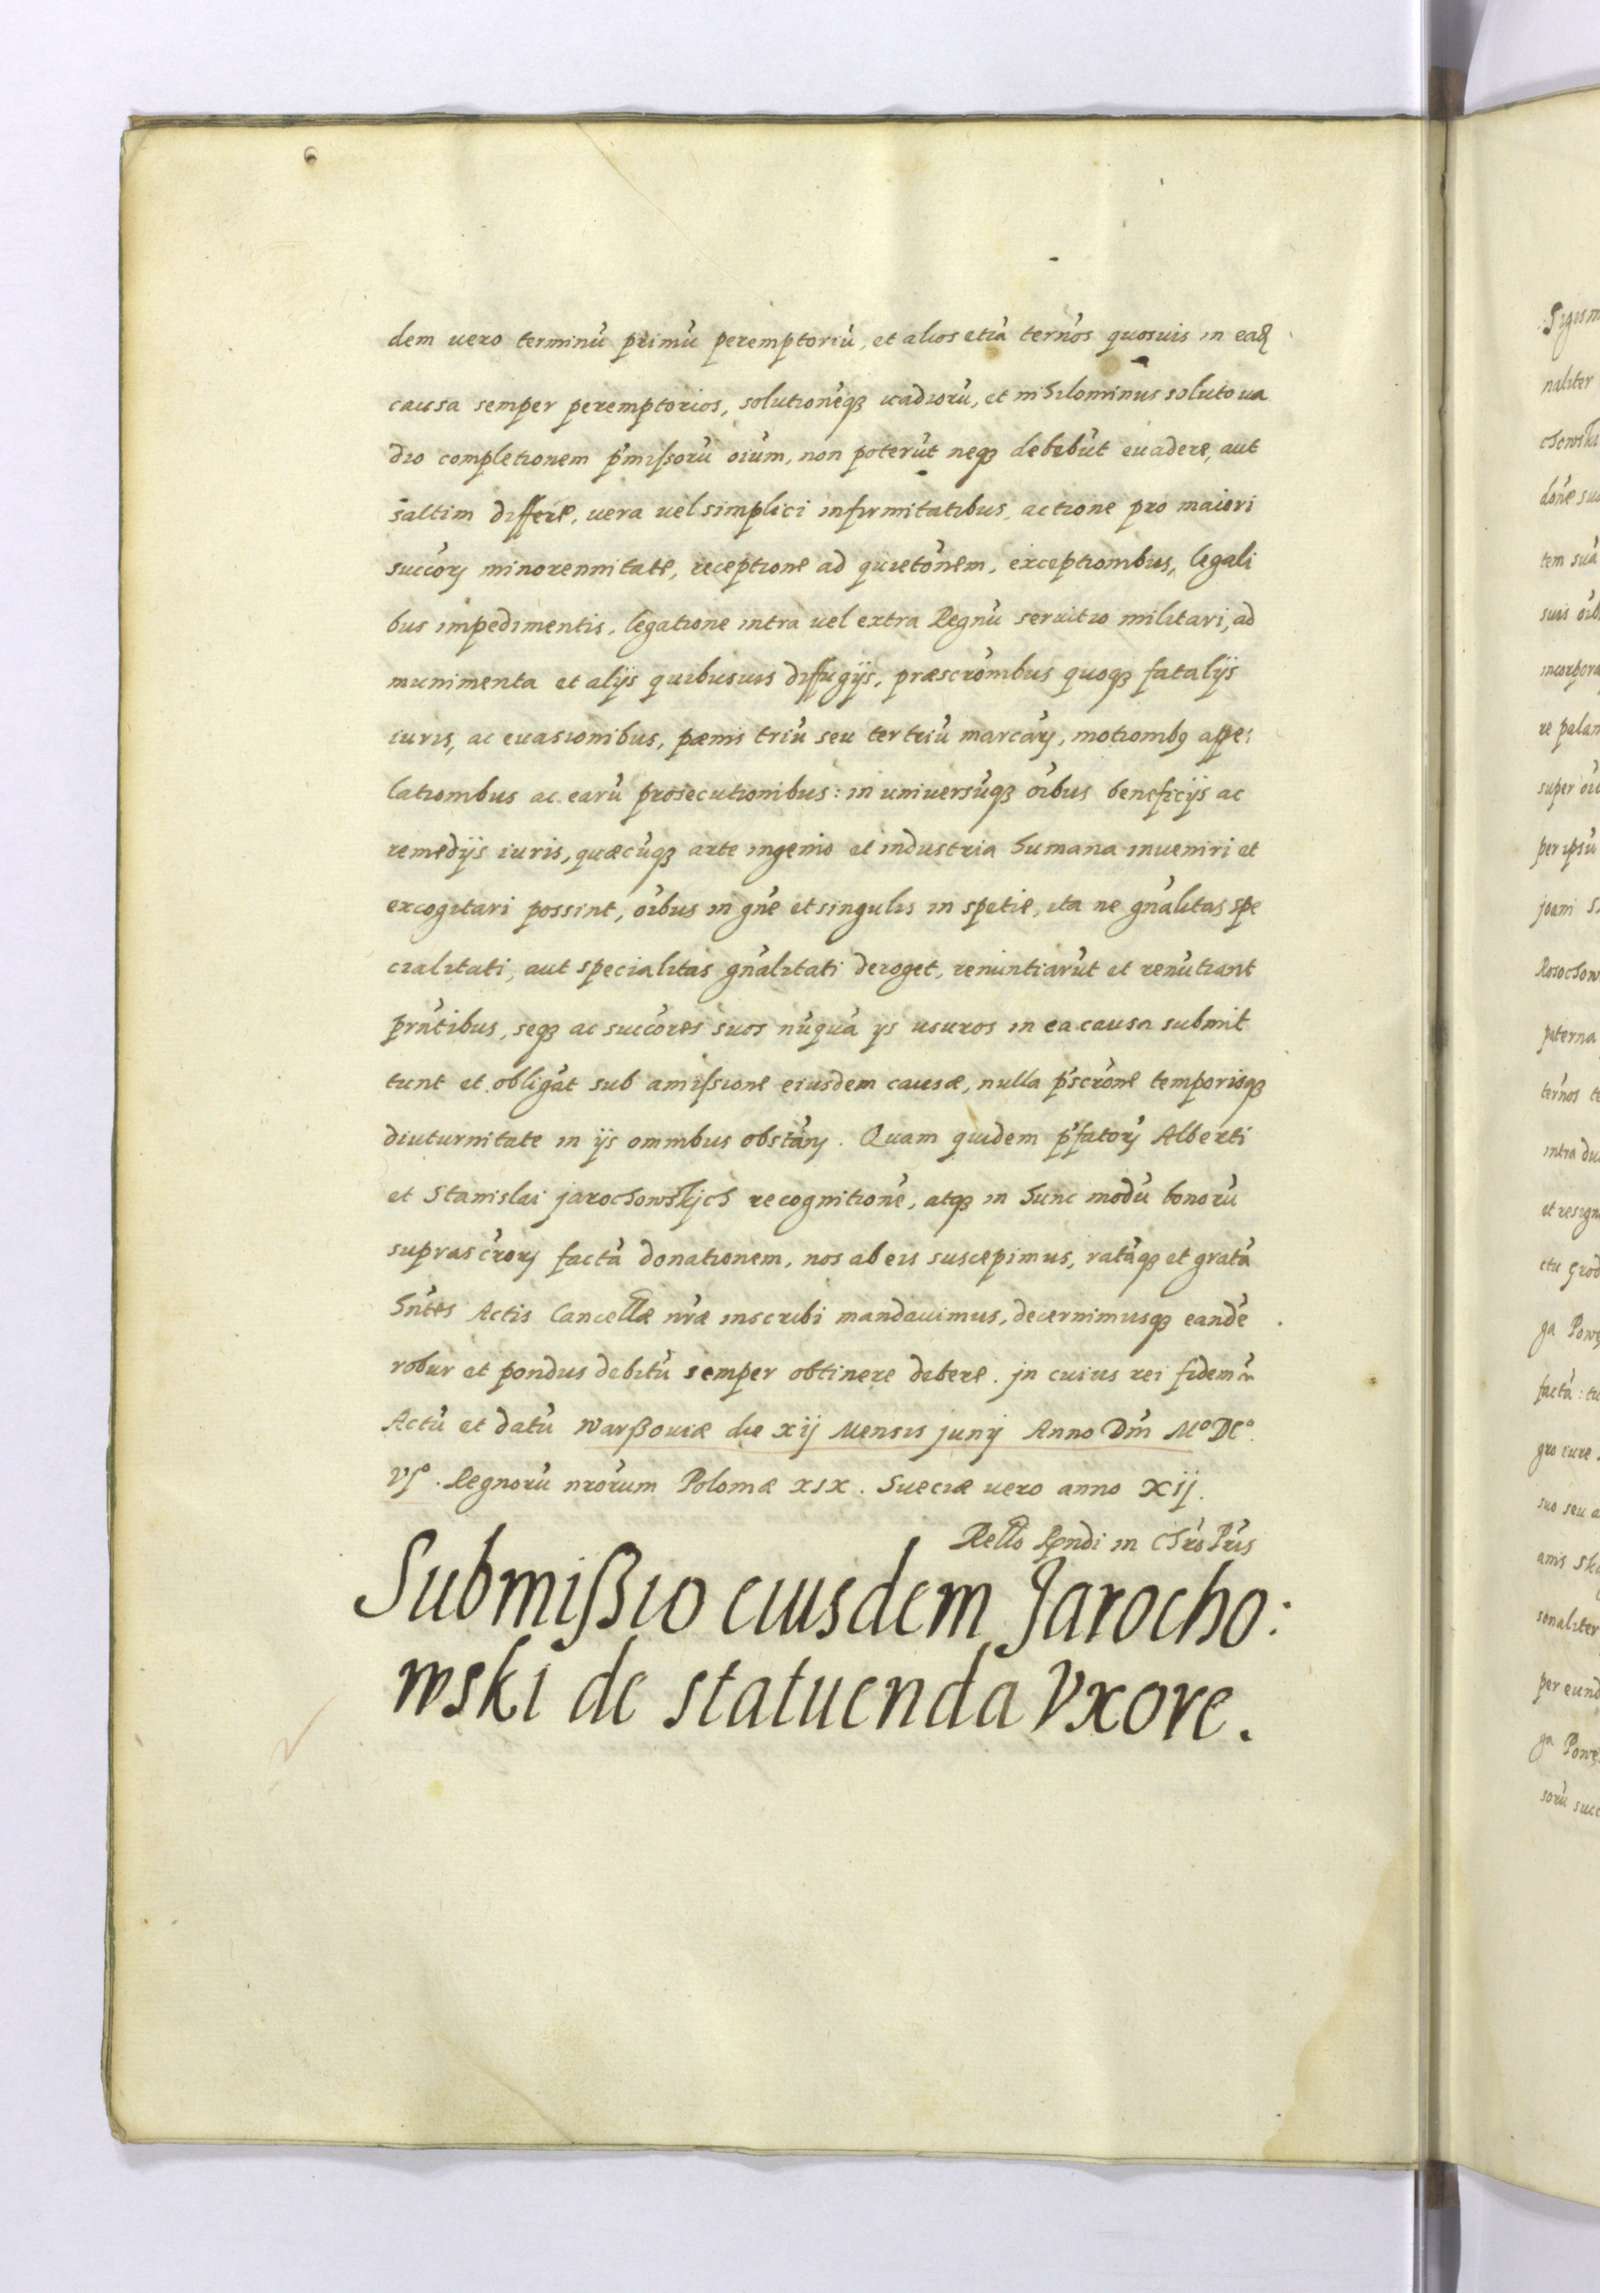 dem vero terminũ primũ peremptoriũ, et alios etiã terños quosvis in eadẽ
causa semper peremptorios, solutionẽq3 vadiorũ, et nihilominus soluto va
dio completionem p̃missorũ oĩum, non poterũt neq3 debebũt evadere, aut
saltim differre, vera vel simplici infirmitatibus, actione pro maiori
succorꝝ minorennitate, receptione ad quietõnem, exceptionibus, legali
bus impedimentis, legatione intra vel extra Regnũ servitio militari, ad
munimenta et alijs quibusvis diffugijs, præscrõnibus quoq3 fatalijs
iuris, ac evasionibus, pœnis triũ seu tertriũ marcarꝝ, motionibꝰ appel
lationibus ac earũ prosecutionibus: in universũq3 oĩbus beneficijs ac
remedijs iuris, quæcũq3 arte ingenio et industria humana inveniri et
excogitari possint, oĩbus in gñe et singulis in spetie, ita ne gñalitas spe
cialitati, aut specialitas gñalitati deroget, renuntiarũt et renũtiant
prñtibus, seq3 ac succores suos nũquã ijs usuros in ea causa submit
tunt et obligãt sub amissione eiusdem causæ, nulla p̃scrõne temporisq3
diuturnitate in ijs omnibus obstañ. Quam quidem p̃fatorꝝ Alberti
et Stanislai Jarochowskjch recognitionẽ, atq3 in hunc modũ bonorũ
suprascrorꝝ factã donationem, nos ab eis suscepimus, ratãq3 et gratã
hñtes Actis Cancellæ nræ inscribi mandavimus, decernimusq3 eandẽ
robur et pondus debitũ semper obtinere debere. Jn cuius rei fidem
Actũ et datũ Warßoviæ die xij Mensis Junij Anno Dñi Mº DCº
VJº. Regnorũ nrõrum Poloniæ XIX. Sueciæ vero anno Xij.
Submißio eiusdem Jarocho:
wski de statuenda Vxore.